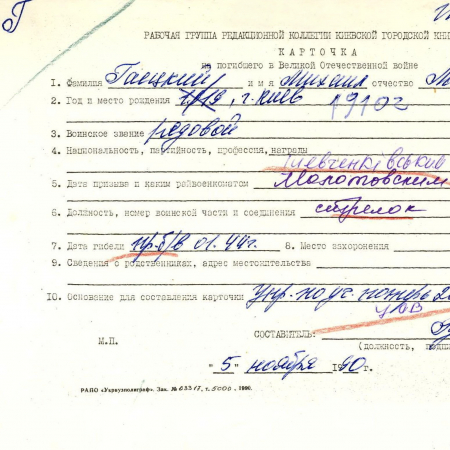 Г
РАБОЧАЯ ГРУППА РЕДАКЦИОННОЙ КОЛЛЕГИИ КИЕВСКОЙ ГОРОДСКОЙ КНИ
КАРТОЧКА
на погибшего в Великой Отечественной войне
1. Фамилия Гаецкий имя Михаил отчество М
2. Год и место рождения 1919, г. Киев 1910г
3. Воинское звание рядовой
4. Национальность, партийность, профессия, награды
Шевченківський
5. Дата призыва и каким райвоенкоматом Молотовским
6. Должность, номер воинской части и соединения стрелок
7. Дата гибели пр.б/в 01.44г. 8. Место захоронения
9. Сведения о родственниках, адрес местожительства
10. Основание для составления карточки
УВВ
СОСТАВИТЕЛЬ:
М.П. (должность,
"5" ноября 1990г.
РАПО «Укрвузполиграф». Зак. № 6337, т. 5000. 1990.